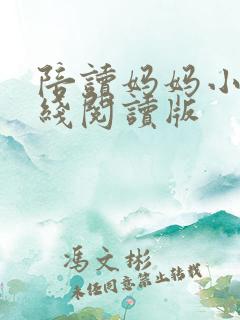 陪讀妈妈小
綫閱讀版
馮文彬
未任同意禁止转载